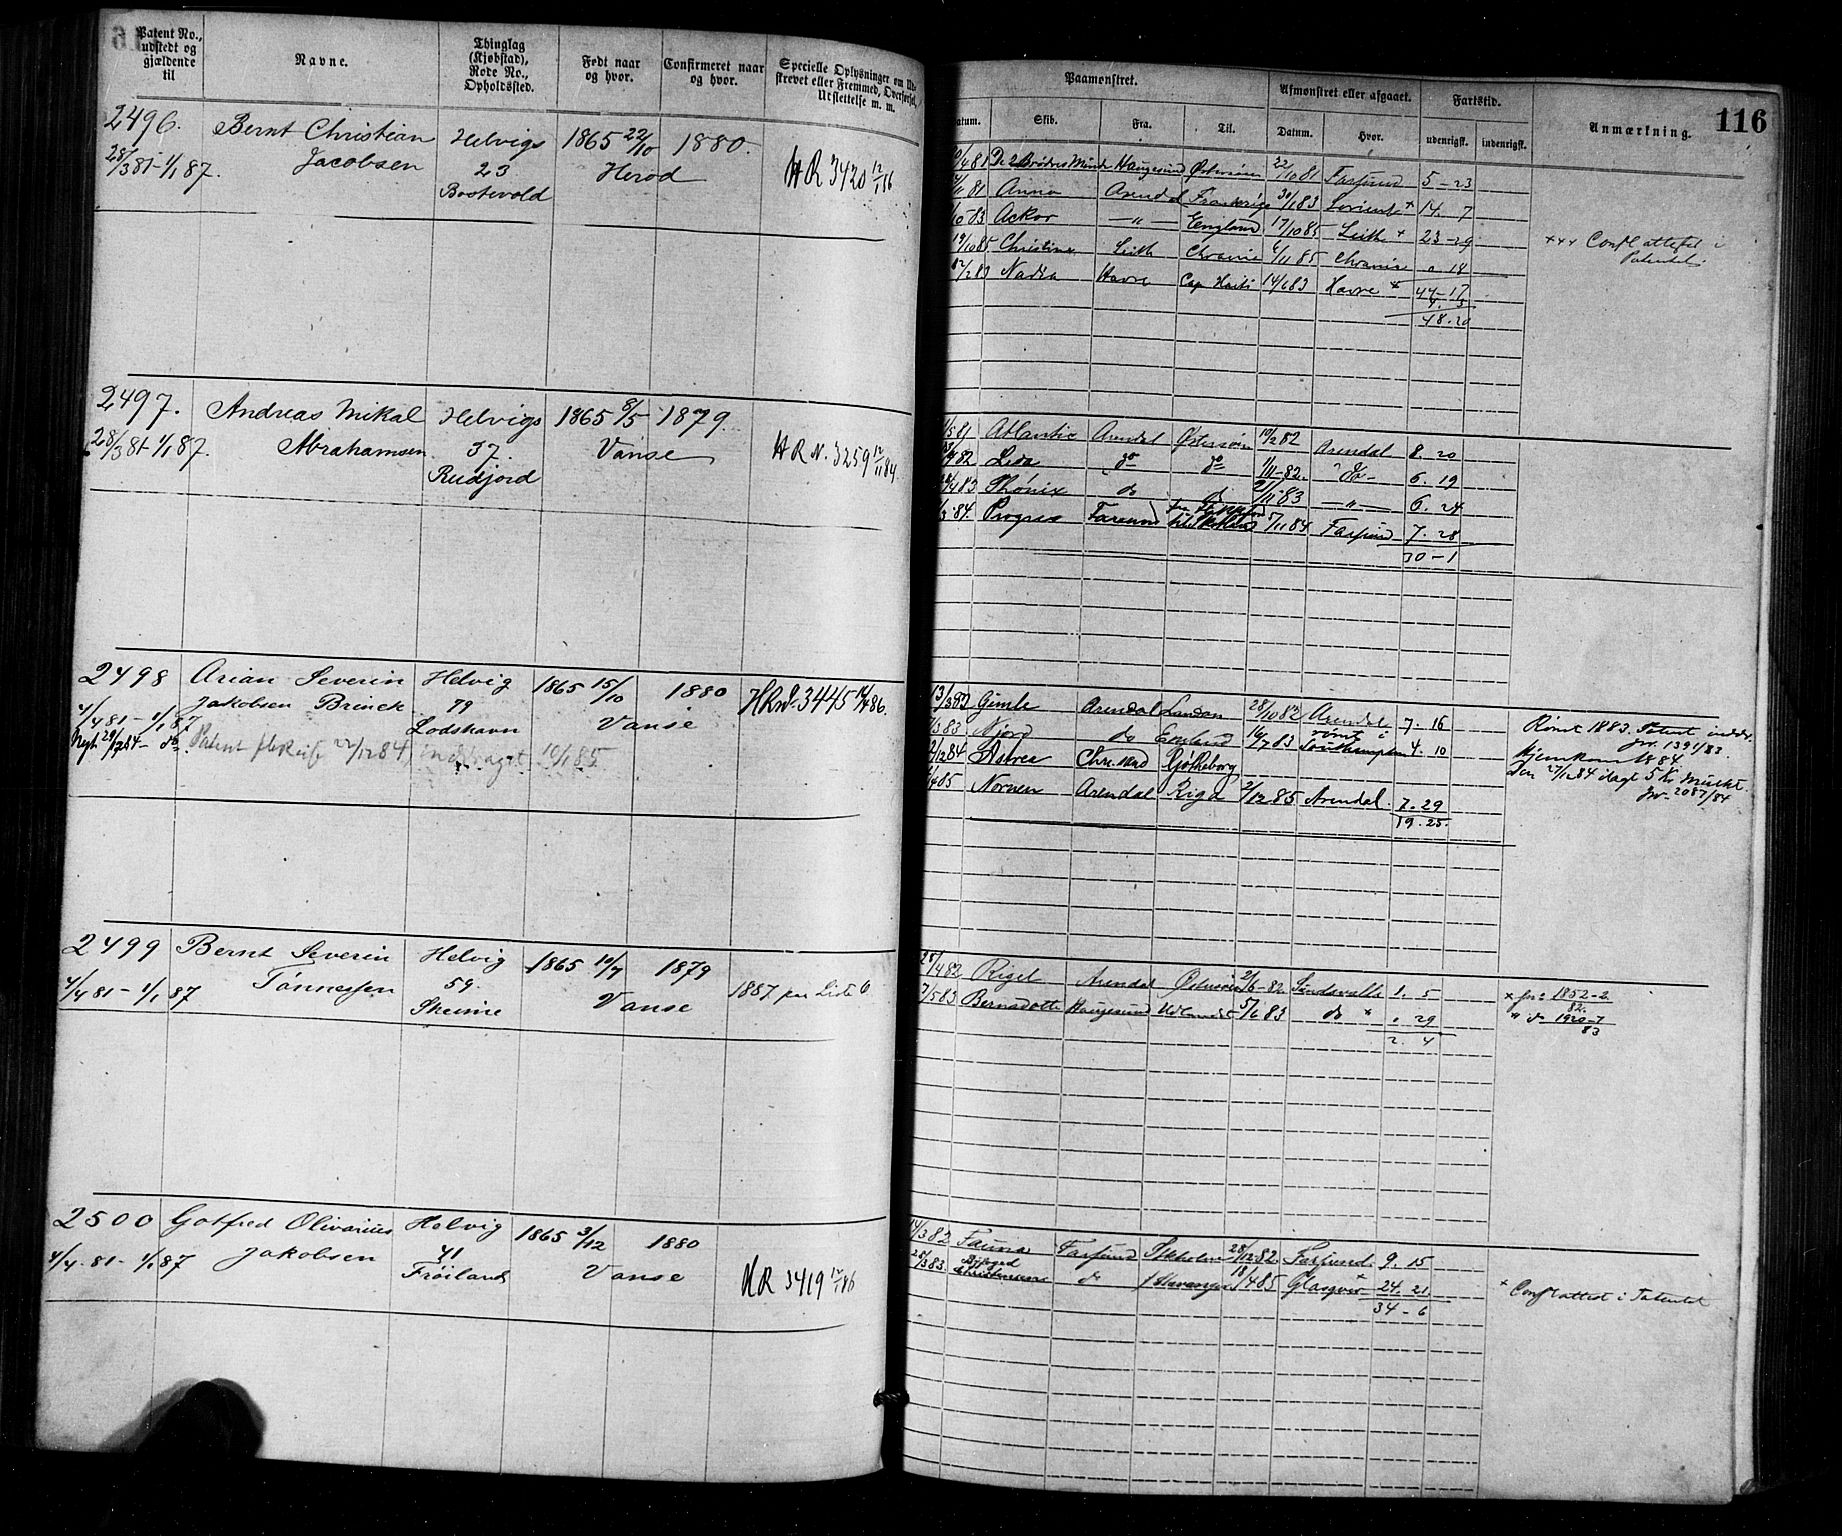 Patent No., udstedt og gjældende til
Navne.
Thinglag (Kjøbstad), Rode No., Opholdssted.
Født naar og hvor.
Confirmeret naar og hvor.
Specielle Oplysninger om Udskrevet eller Fremmed, Overførsel, Udslettelse m. m.
Paamønstret.
Afmønstret eller afgaaet.
Fartstid.
Anmærkning.
116
Datum.
Skib.
Fra.
Til.
Datum.
Hvor.
udenrigsk.
indenrigsk.
2496.
Bernt Christian
Jacobsen
Helvigs
23
Bostevold
1865 22/10
Herod
1880.
28/3 81 - 1/1 87.
HR 3420 12/1 86
De 2 Brødre Haugesund Østersøen 22/10 81 Farsund 5 - 23
11 81 Anna Arendal Frankrige 30/1 83 Lorient + 14. 7
10 83 Ackor - " - England 17/10 85 Leith + 23 - 29
19/10 85 Christine Leith Chrania 6/11 85 Chrania 0. 18
12/2 83 Nadia Havre Cap Haiti 14/6 83 Havre + 44 - 17
4. 3
48. 20
+++ Confl attest i
Patentet.
2497.
Andreas Mikal
Abrahamsen
Helvigs
37.
Rudjord
1865 8/5
Vanse
1879
28/3 81 - 1/1 87.
HR N. 3259 12/11 84.
Atlantic Arendal Østersøen 10/12 82 Arendal 8. 20
82 Leda do do 1/11 - 82. do - 6. 19
83 Phønix do do 2/11 83 - " - 6. 24
84. Progress Farsund 5/11 84 Farsund 7. 28
30 - 1
2498
Arian Severin
Jakobsen Brinck
Helvig
79
Lodshavn
1865 15/10
Vanse
1880
4/4 81 - 1/1 87
Nyt. 29/12 84 - do
Patent 22/12 84, inddraget 10/1 85
HR No 3445 86.
13/3 82 Gimle Arendal London 28/10 82 Arendal 7. 16
83 Njord do England 16/7 83 rømt i Southampton 4. 10
2/12 84 Astrea Chr.sand Gøtheborg
4 85 Nornen Arendal Riga 2/12 85 Arendal. 7. 29
19. 25.
Rømt 1883. Patent inddr.
Jr. 1391/83
Hjemkom 1884.
Den 27/12 84 ilagt 5 Kr. Mulkt.
Jr. 2087/84
2499
Bernt Severin
Tønnessen
Helvig
59.
Skeime
1865 10/7
Vanse
1879
4/4 81 - 1/1 87
1887 paa Liste 6
28/4 82 Rigel Arendal Østersøen 2/6 - 82. Sundsvall + 1. 5
7/5 83 Bernadotte Haugesund Udlandet 5/6 83 do + 0. 29
2. 4
+ Jr. 1852-2/82.
" do 1920-7/83
2500
Gotfred Olivarius
Jakobsen
Helvig
41
Frøiland
1865 3/12
Vanse
1880
4/4. 81 - 1/1 87
HR 3419 12/1 86
14/3 82 Fauna Farsund Stkholm 28/12 82. Farsund. 9. 15
28/3 83. Christensen do Stavanger 18/4 85 Glasgow + 24. 21.
34 - 6
+ Confl attest i Patentet